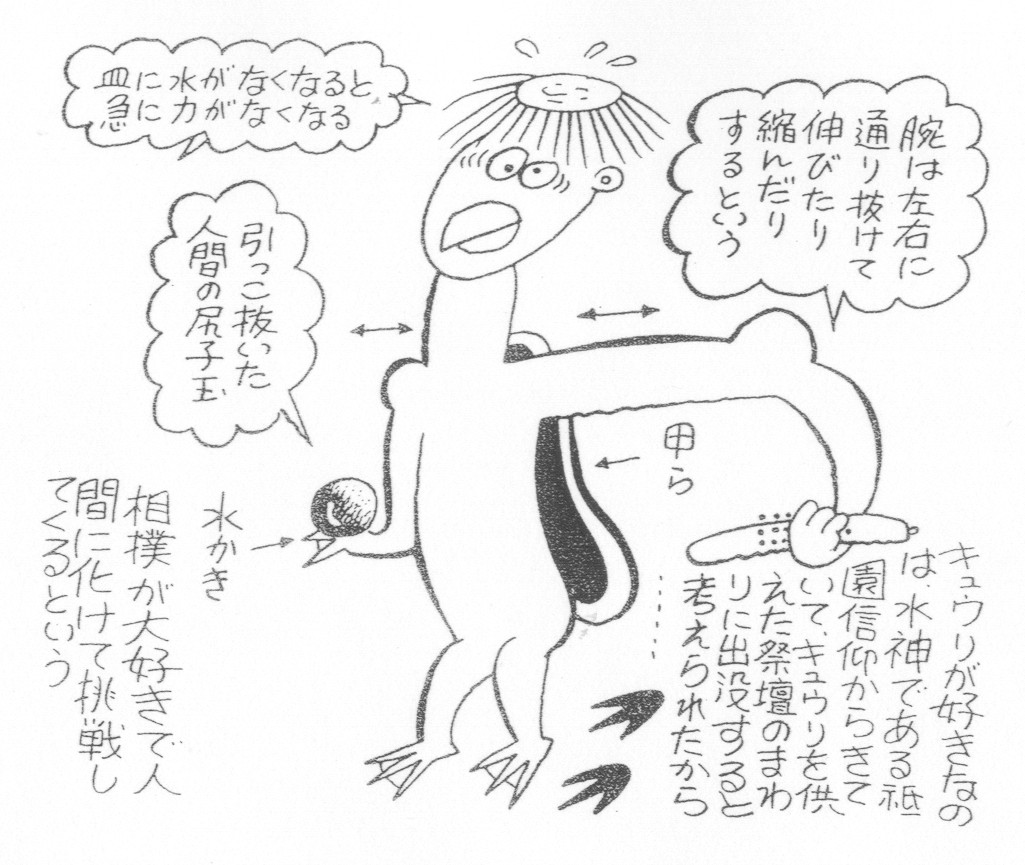 皿に水がなくなると
急に力がなくなる
腕は左右に
通り抜けて
伸びたり
縮んだり
するという
引っこ抜いた
人間の尻子玉
甲ら
水かき
相撲が大好きで人
間に化けて挑戦し
てくるという
キュウリが好きなの
は、水神である祇
園信仰からきて
いて、キュウリを供
えた祭壇のまわ
りに出没すると
考えられたから